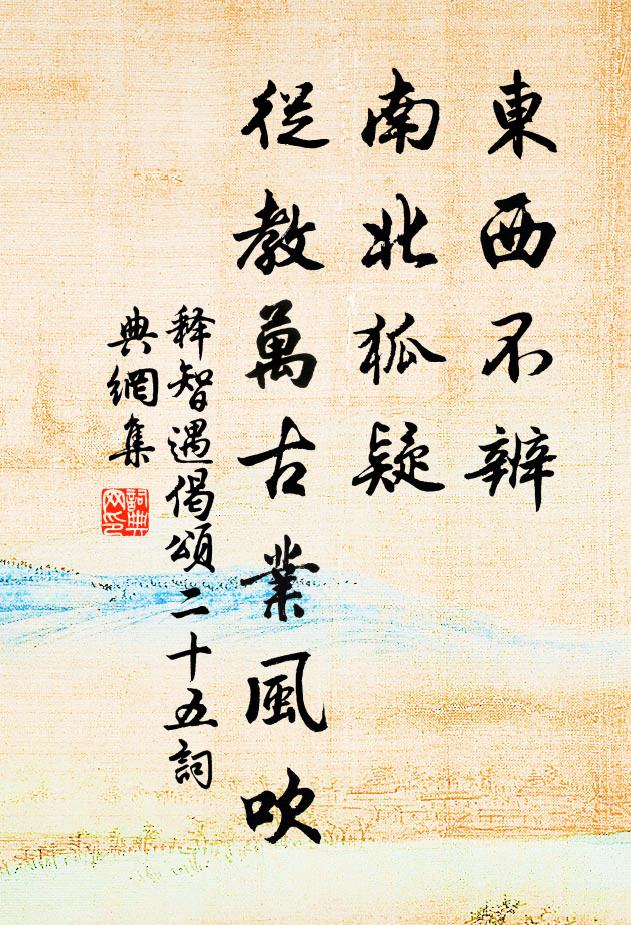 東西不辨
南北狐疑
從教萬古業風吹
释智遇偈頌二十五詞
典網集
詞典
网印